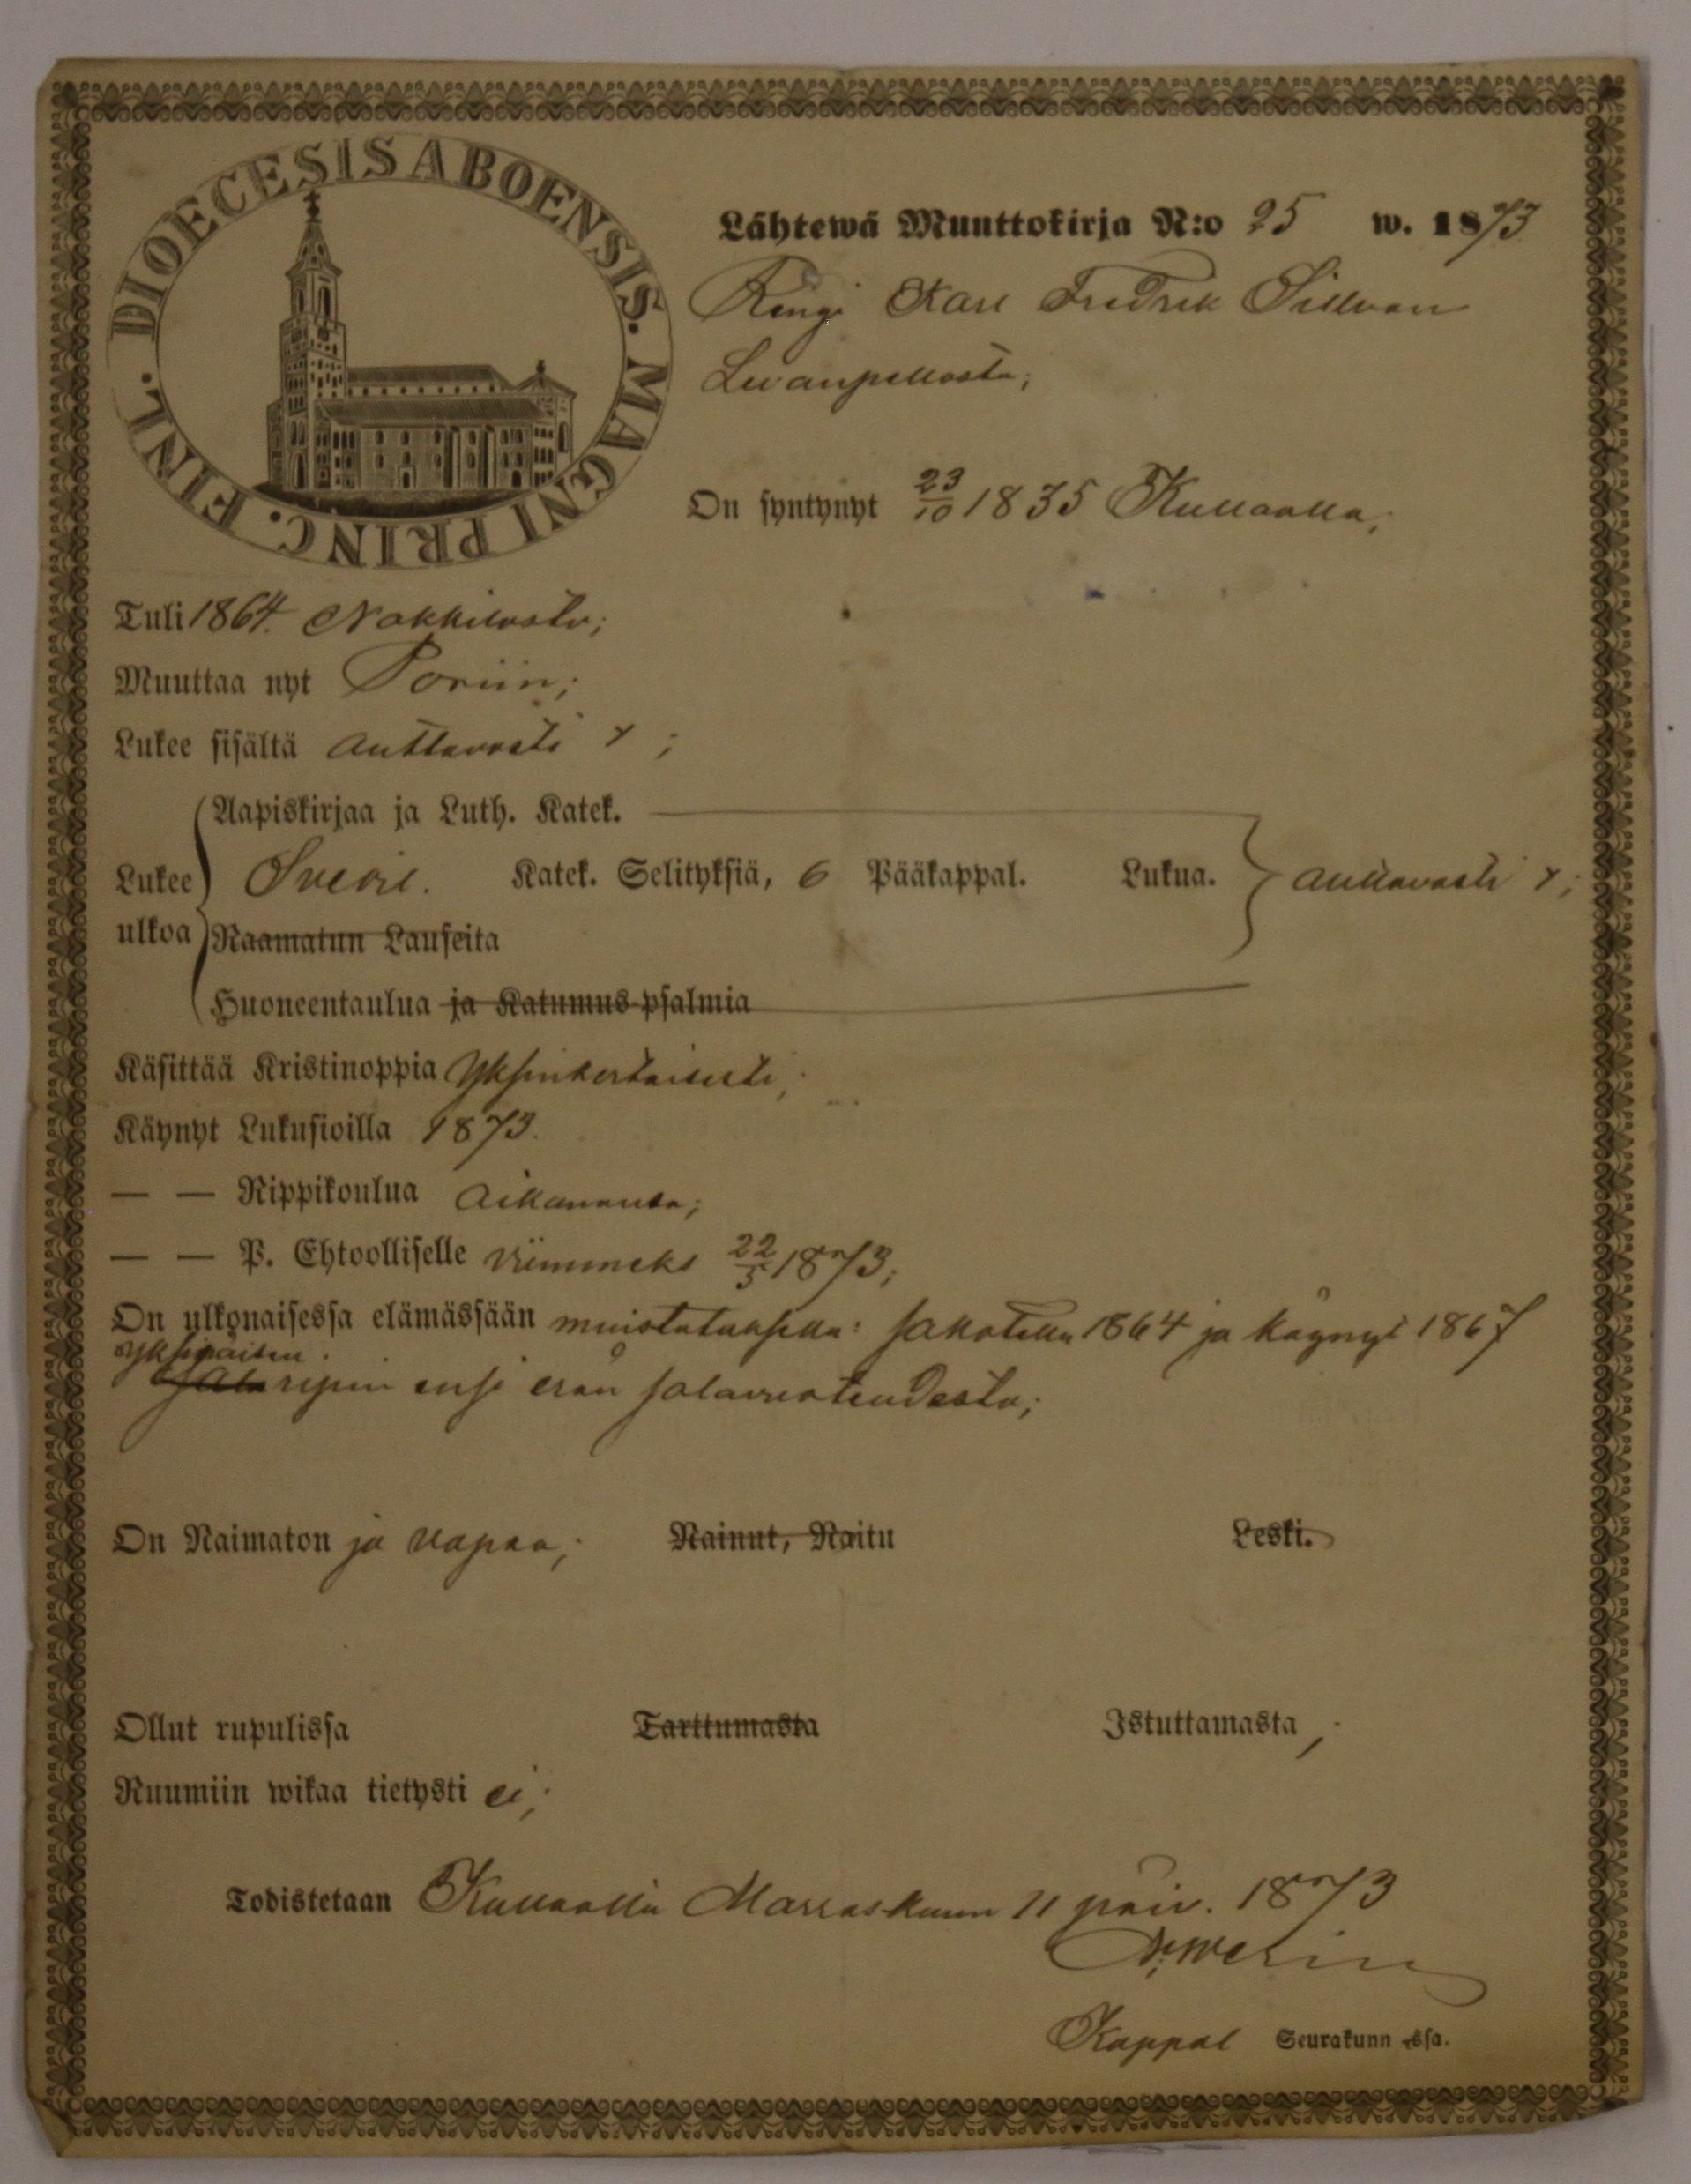 DIOECESIS ABOENSIS. MAGNI PRINC. FINL.
Lähtewä Muuttokirja N:o 25 w. 1873
Rengi Karl Fredrik Sillvan
Levanpellosta;
On syntynyt 23/10 1835 Kullaalla;
Tuli 1864. Nakkilasta;
Muuttaa nyt Poriin;
Lukee sisältä auttavasti + ;
Aapiskirjaa ja Luth. Katek.
Lukee Svebil. Katek. Selityksiä, 6 Pääkappal. Lukua. auttavasti +;
ulkoa Raamatun Lauseita
Huoneentaulua ja Katumus-psalmia
Käsittää Kristinoppia Yksinkertaisesti;
Käynyt Lukusioilla 1873.
— — Rippikoulua aikanansa;
— — P. Ehtoolliselle viimmeks 22/5 1873;
On ulkonaisessa elämässään muistutuksella: sakotettu 1864 ja käynyt 1867
yksinäisen
Sala ripin ensi erän salavuoteudesta;
On Naimaton ja vapaa; Nainut, Naitu Leski.
Ollut rupulissa Tarttumasta Istuttamasta ;
Ruumiin wikaa tietysti ei;
Todistetaan Kullaalla Marraskuun 11 päiv. 1873
Kappal Seurakunn ssa.